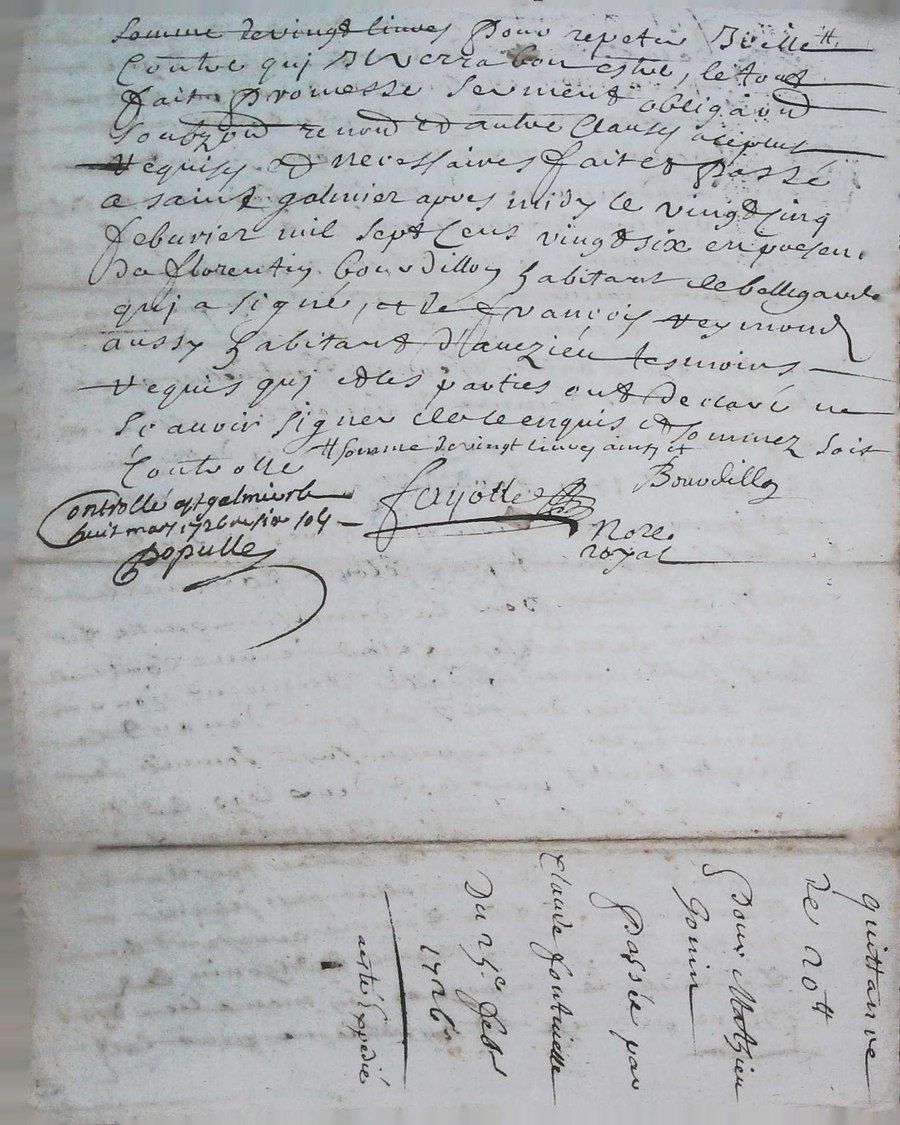 somme de vingt livres pour repeter Icelle #
Contre qui Il verra bon estre, le tout
fait promesse serment obligaon
soubzon renond et autre Clauses
requises et necessaires fait et passé
a saint galmier apres midy le vingt cinq
feburier mil sept Cens vingt six en presen.
De florentin bourdillon habitant de bellegarde
qui a signé, et de francois reymond
aussy habitant d'auezieu tesmoins
requis qui et les parties ont declaré ne
sc auoir signer de ce enquis et sommez sois
Controllé # somme de vingt livres ainsy et
Bourdillon
fayolle
Nore.
royal
Controllé a st galmier le
huit mars 1726 resu 10 s
Populle
quittance
De 20 tt
Pour Mathieu
Gonin
Passée par
Claude fontvielle
Du 25e feb
1726
a esté Expedié